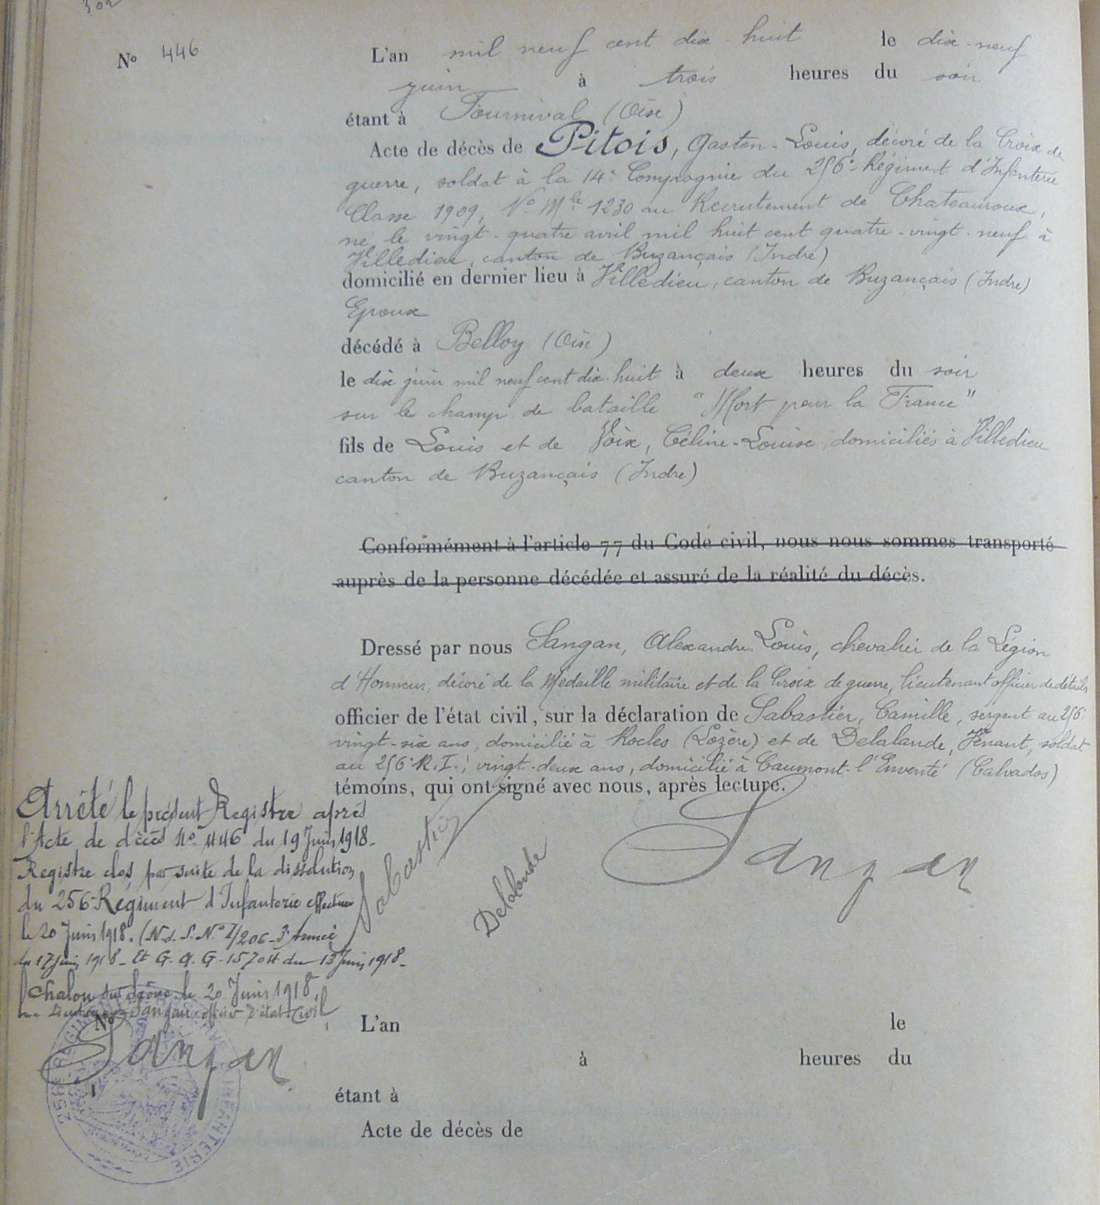 302
No 446
L'an mil neuf cent dix-huit le dix-neuf
juin à trois heures du soir
étant à Fournival (Oise)
Acte de décès de Pitois, Gaston-Louis, décoré de la Croix de
guerre, soldat à la 14e Compagnie du 256e Régiment d'Infanterie
Classe 1909, No Mle 1230 au Recrutement de Chateauroux,
né le vingt-quatre avril mil huit cent quatre-vingt-neuf à
Villedieu, canton de Buzançais (Indre)
domicilié en dernier lieu à Villedieu, canton de Buzançais (Indre)
Epoux
décédé à Belloy (Oise)
le dix juin mil neuf cent dix-huit à deux heures du soir
sur le champ de bataille "Mort pour la France"
fils de Louis et de Voix, Céline-Louise, domiciliés à Villedieu
canton de Buzançais (Indre)
Conformément à l'article 77 du Code civil, nous nous sommes transporté
auprès de la personne décédée et assuré de la réalité du décès.
Dressé par nous Sangan, Alexandre Louis, chevalier de la Légion
d'Honneur, décoré de la Médaille militaire et de la Croix de guerre, lieutenant officier de détails
officier de l'état civil, sur la déclaration de Sabastier, Camille, sergent au 256
vingt-six ans, domicilié à Rocles (Lozère) et de Delalande, soldat
au 256e R.I., vingt-deux ans, domicilié à Caumont-l'Eventé (Calvados)
témoins, qui ont signé avec nous, après lecture.
Sabastier
Delalande
Sangan
Arrêté le présent Registre après
l'Acte de décès No 446 du 19 Juin 1918.
Registre clos par suite de la dissolution
du 256e Régiment d'Infanterie effectuée
le 20 Juin 1918. (N.d.S. No 1/206 - 3e Armée
du 17 Juin 1918 - Et G.Q.G. 15704 du 13 Juin 1918.
Chalon sur Saône le 20 Juin 1918
Sangan officier d'état-Civil
No
Sangan
256e REGIMENT D'INFANTERIE
L'an le
à heures du
étant à
Acte de décès de